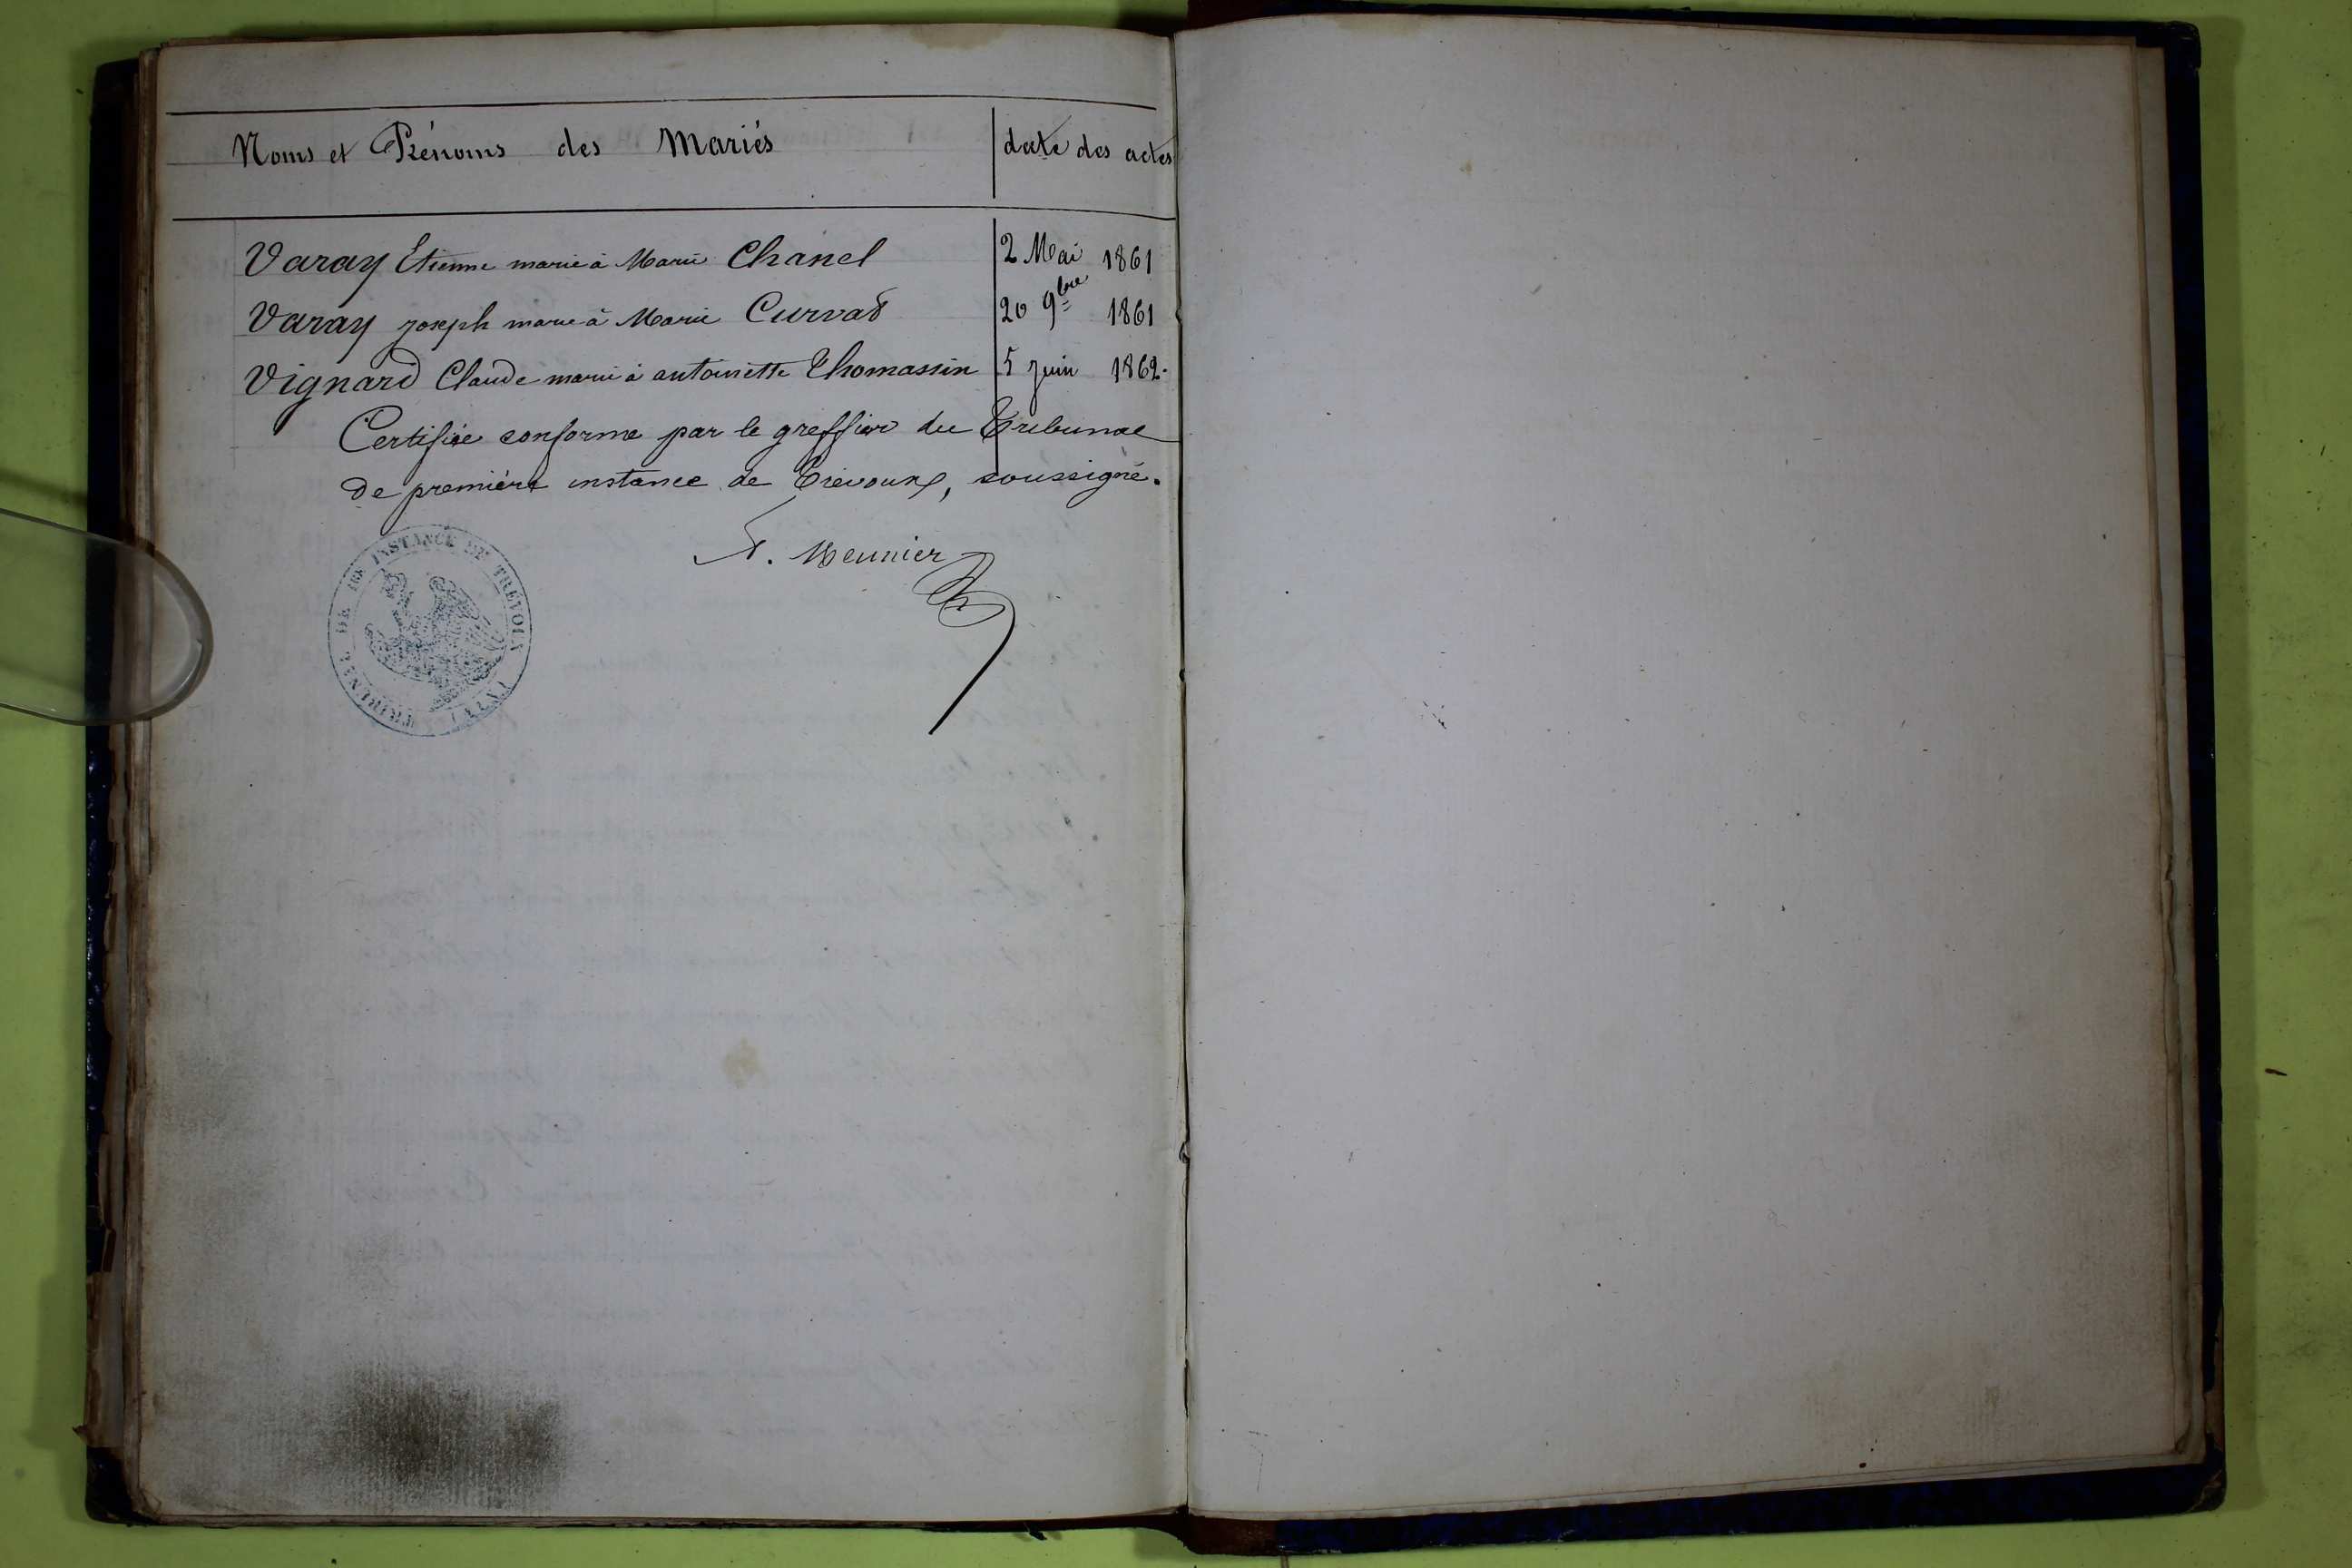 Noms et Prénoms des Mariés | date des actes
Varay Etienne marié à Marie Chanel | 2 Mai 1861
Varay joseph marié à Marie Curvat | 20 9bre 1861
Vignard Claude marié à antoinette Thomassin | 5 juin 1862.
Certifiée conforme par le greffier du Tribunal
de première instance de Trévoux, soussigné.
Meunier
TRIBUNAL DE 1ERE INSTANCE DE TRÉVOUX (AIN)